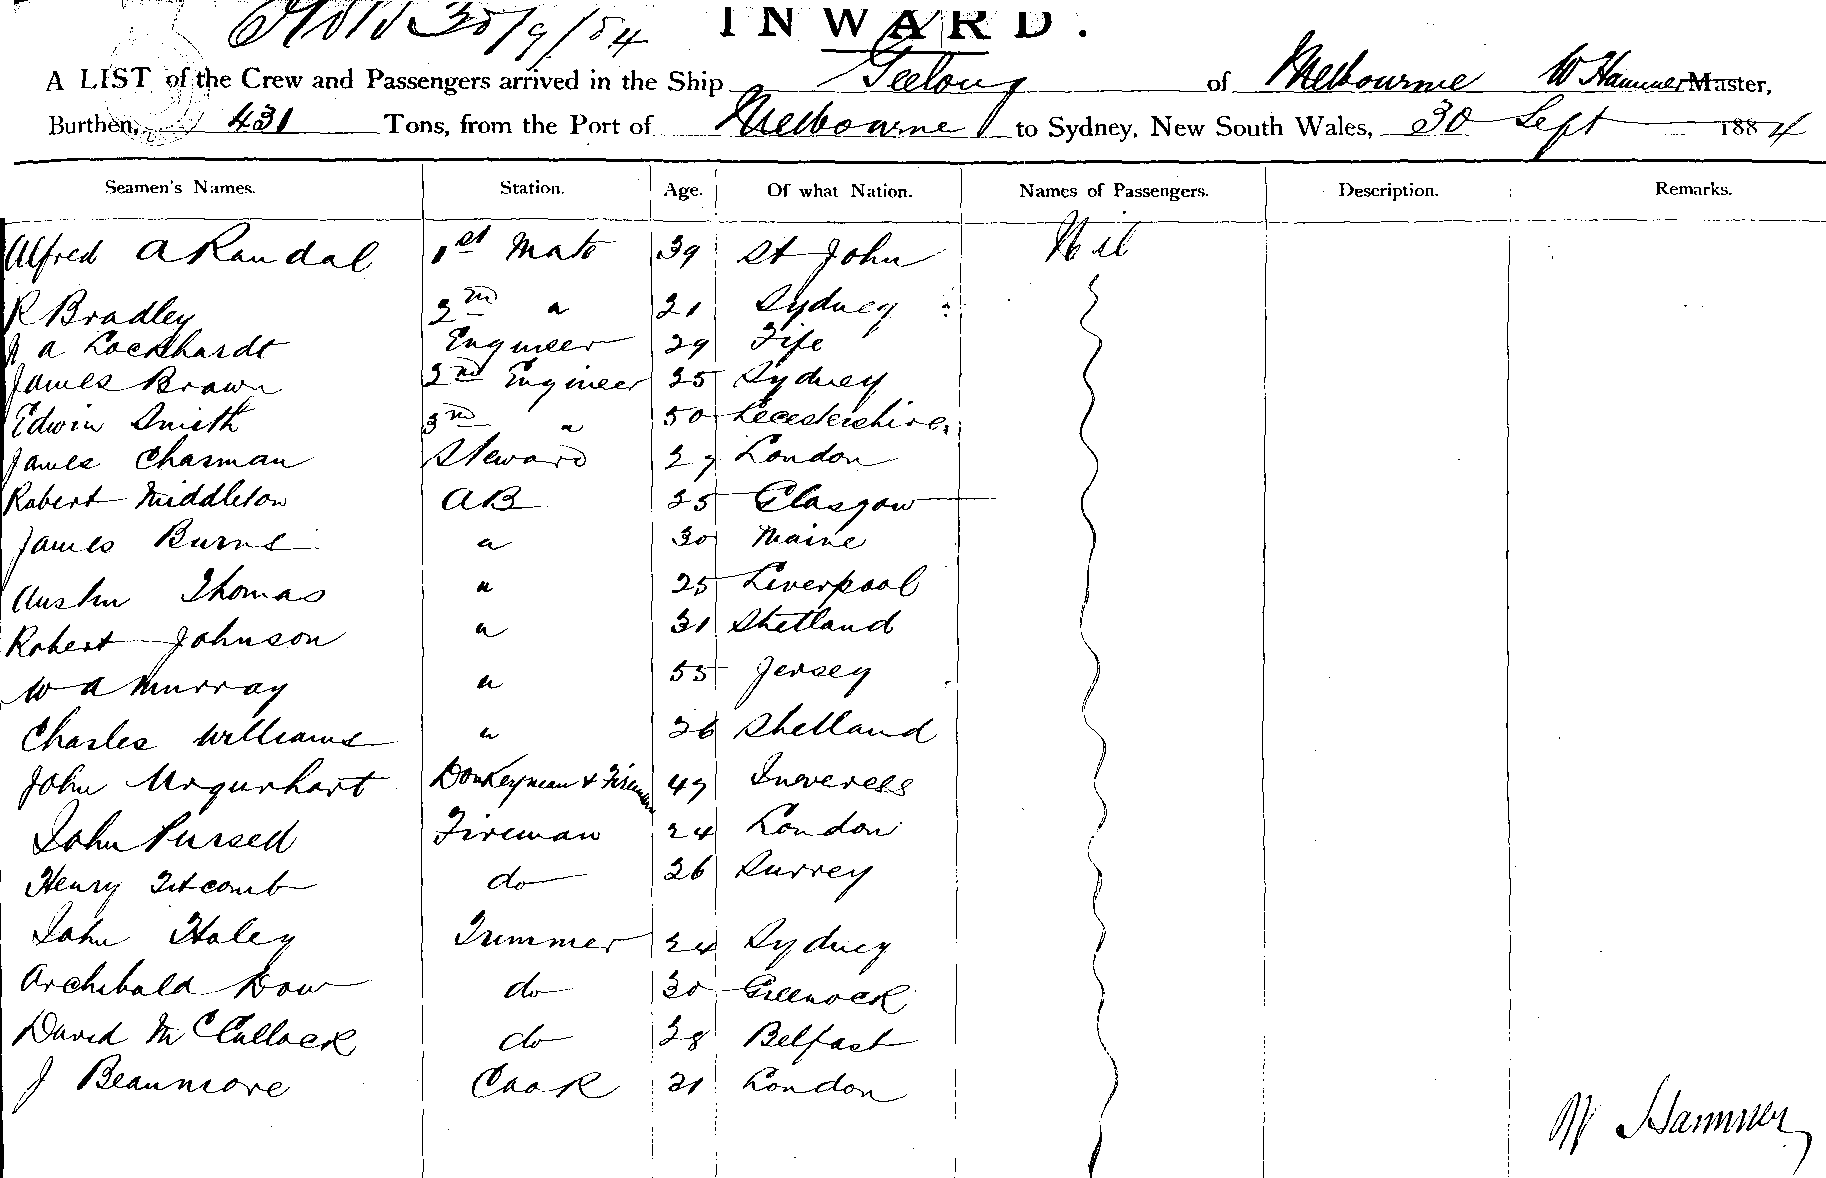 30/9/84
INWARD.
A LIST of the Crew and Passengers arrived in the Ship Geelong of Melbourne W Hammer Master,
Burthen, 431 Tons, from the Port of Melbourne to Sydney, New South Wales, 30 Sept 1884
Seamen's Names. Station. Age. Of what Nation. Names of Passengers. Description. Remarks.
Alfred A Randal 1st Mate 39 St John Nil
R Bradley 2nd " 21 Sydney
J A Lockhardt Engineer 29 Fife
James Brown 2nd Engineer 35 Sydney
Edwin Smith 3rd " 50 Leicestershire
James Chasman Steward 27 London
Robert Middleton AB 25 Glasgow
James Burns " 30 Maine
Austin Thomas " 25 Liverpool
Robert Johnson " 31 Shetland
W A Murray " 55 Jersey
Charles Williams " 26 Shetland
John Urquhart Donkeyman & Fireman 47 Inverell
John Pursell Fireman 24 London
Henry Titcomb do 26 Surrey
John Haley Trimmer 24 Sydney
Archibald Dow do 30 Greenock
David McCullock do 28 Belfast
J Beaumore Cook 31 London
W Hammer